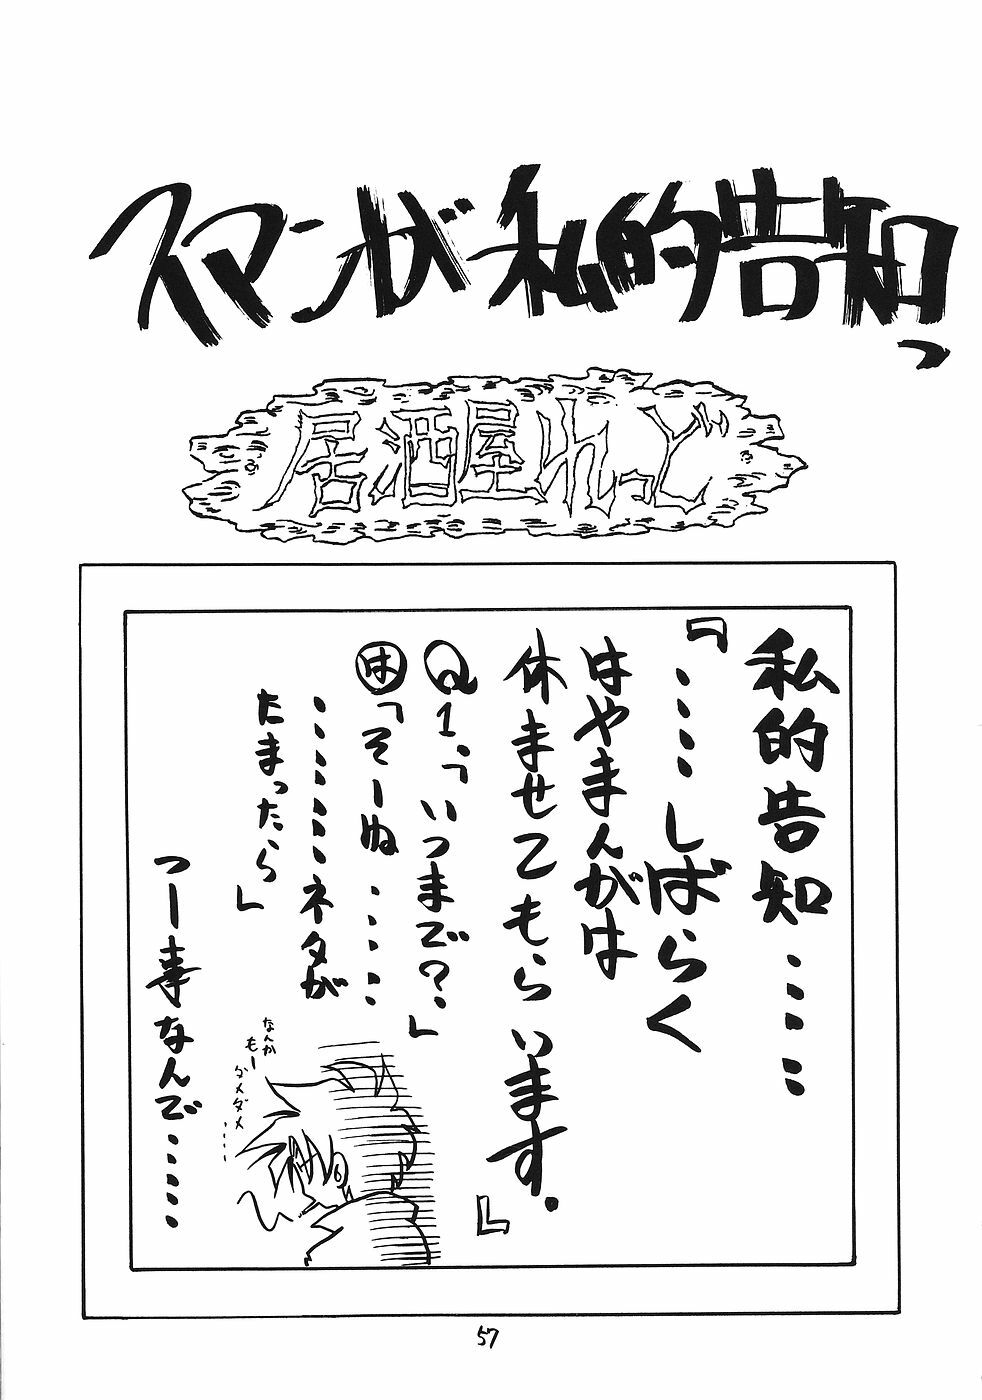 スマンが私的告知っ
居酒屋れっど
私的告知‥‥
『‥‥しばらく
はやまんがは
休ませてもらいます。』
Q1.「いつまで?」
は「そーぬ‥‥
‥‥‥ネタが
たまったら」
つー事なんで‥‥
なんか
もー
ダメダメ‥‥
57